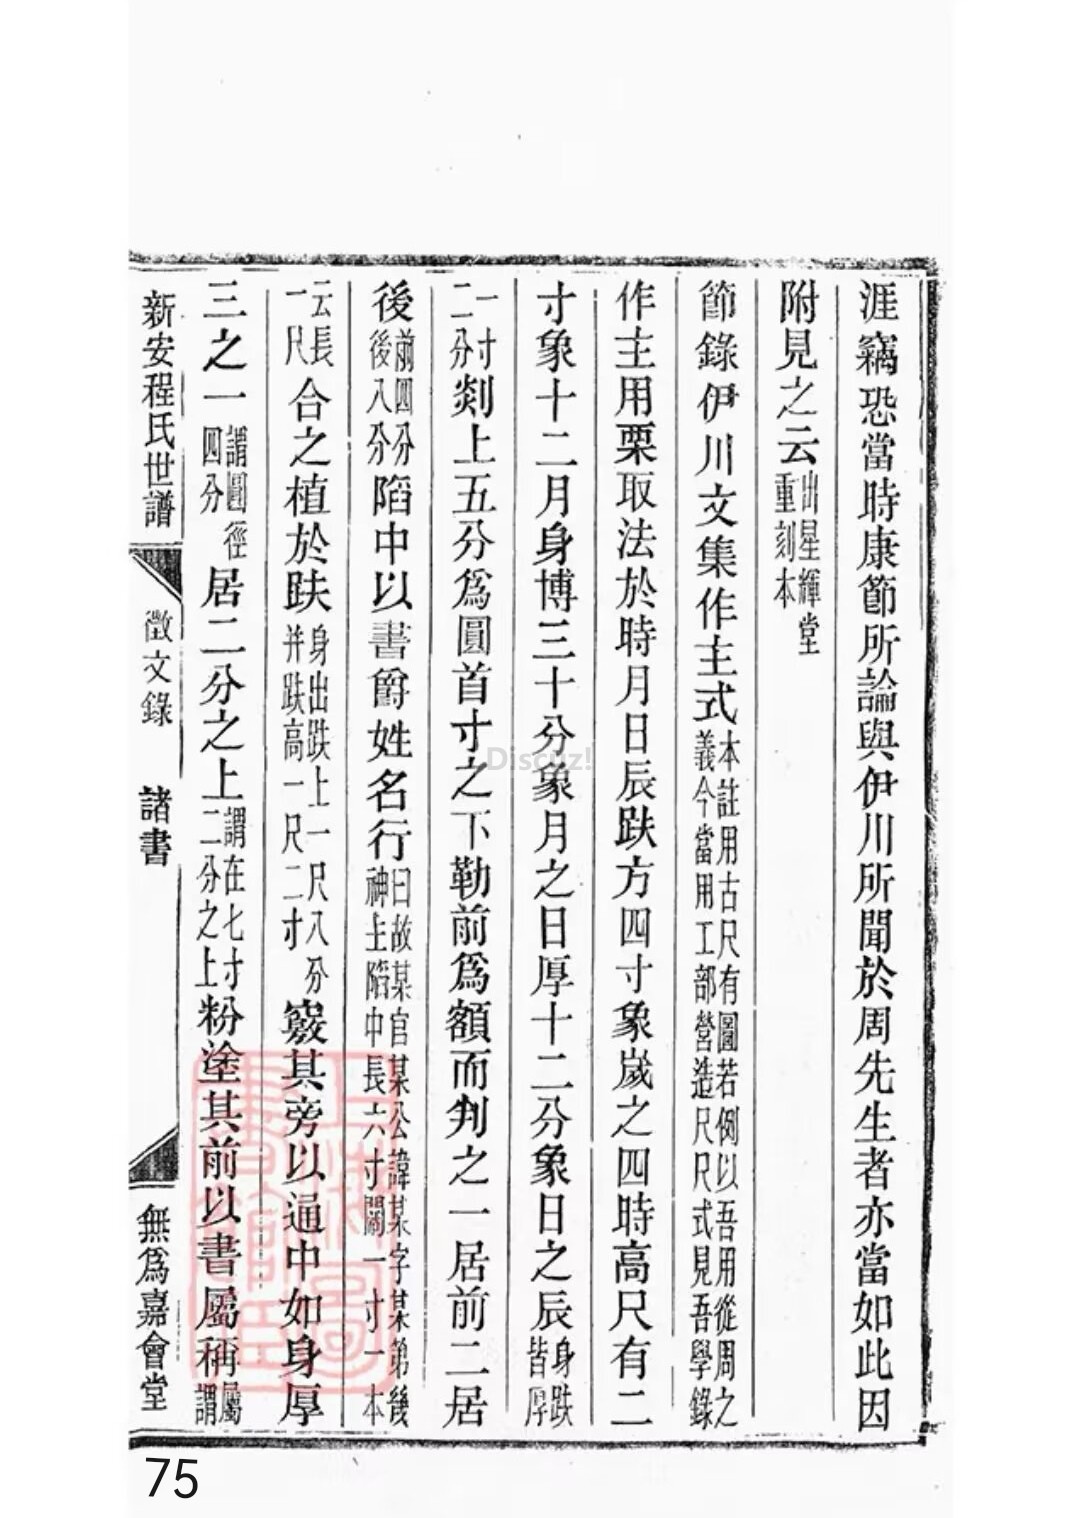 涯竊恐當時康節所論與伊川所聞於周先生者亦當如此因
附見之云出星輝堂重刻本
節錄伊川文集作主式本註用古尺有圖若例以吾用從周之義今當用工部營造尺尺式見吾學錄
作主用栗取法於時月日辰趺方四寸象嵗之四時高尺有二
寸象十二月身博三十分象月之日厚十二分象日之辰身趺皆厚
一寸二分剡上五分爲圓首寸之下勒前爲額而判之一居前二居
後前四分後八分陷中以書爵姓名行曰故某官某公諱某字某第幾神主陷中長六寸闊一寸一本
云長一尺合之植於趺身出趺上一尺八分并趺高一尺二寸竅其旁以通中如身厚
三之一謂圓徑四分居二分之上謂在七寸二分之上粉塗其前以書屬稱屬謂
新安程氏世譜 徵文錄 諸書 無爲嘉會堂
Discuz!
75